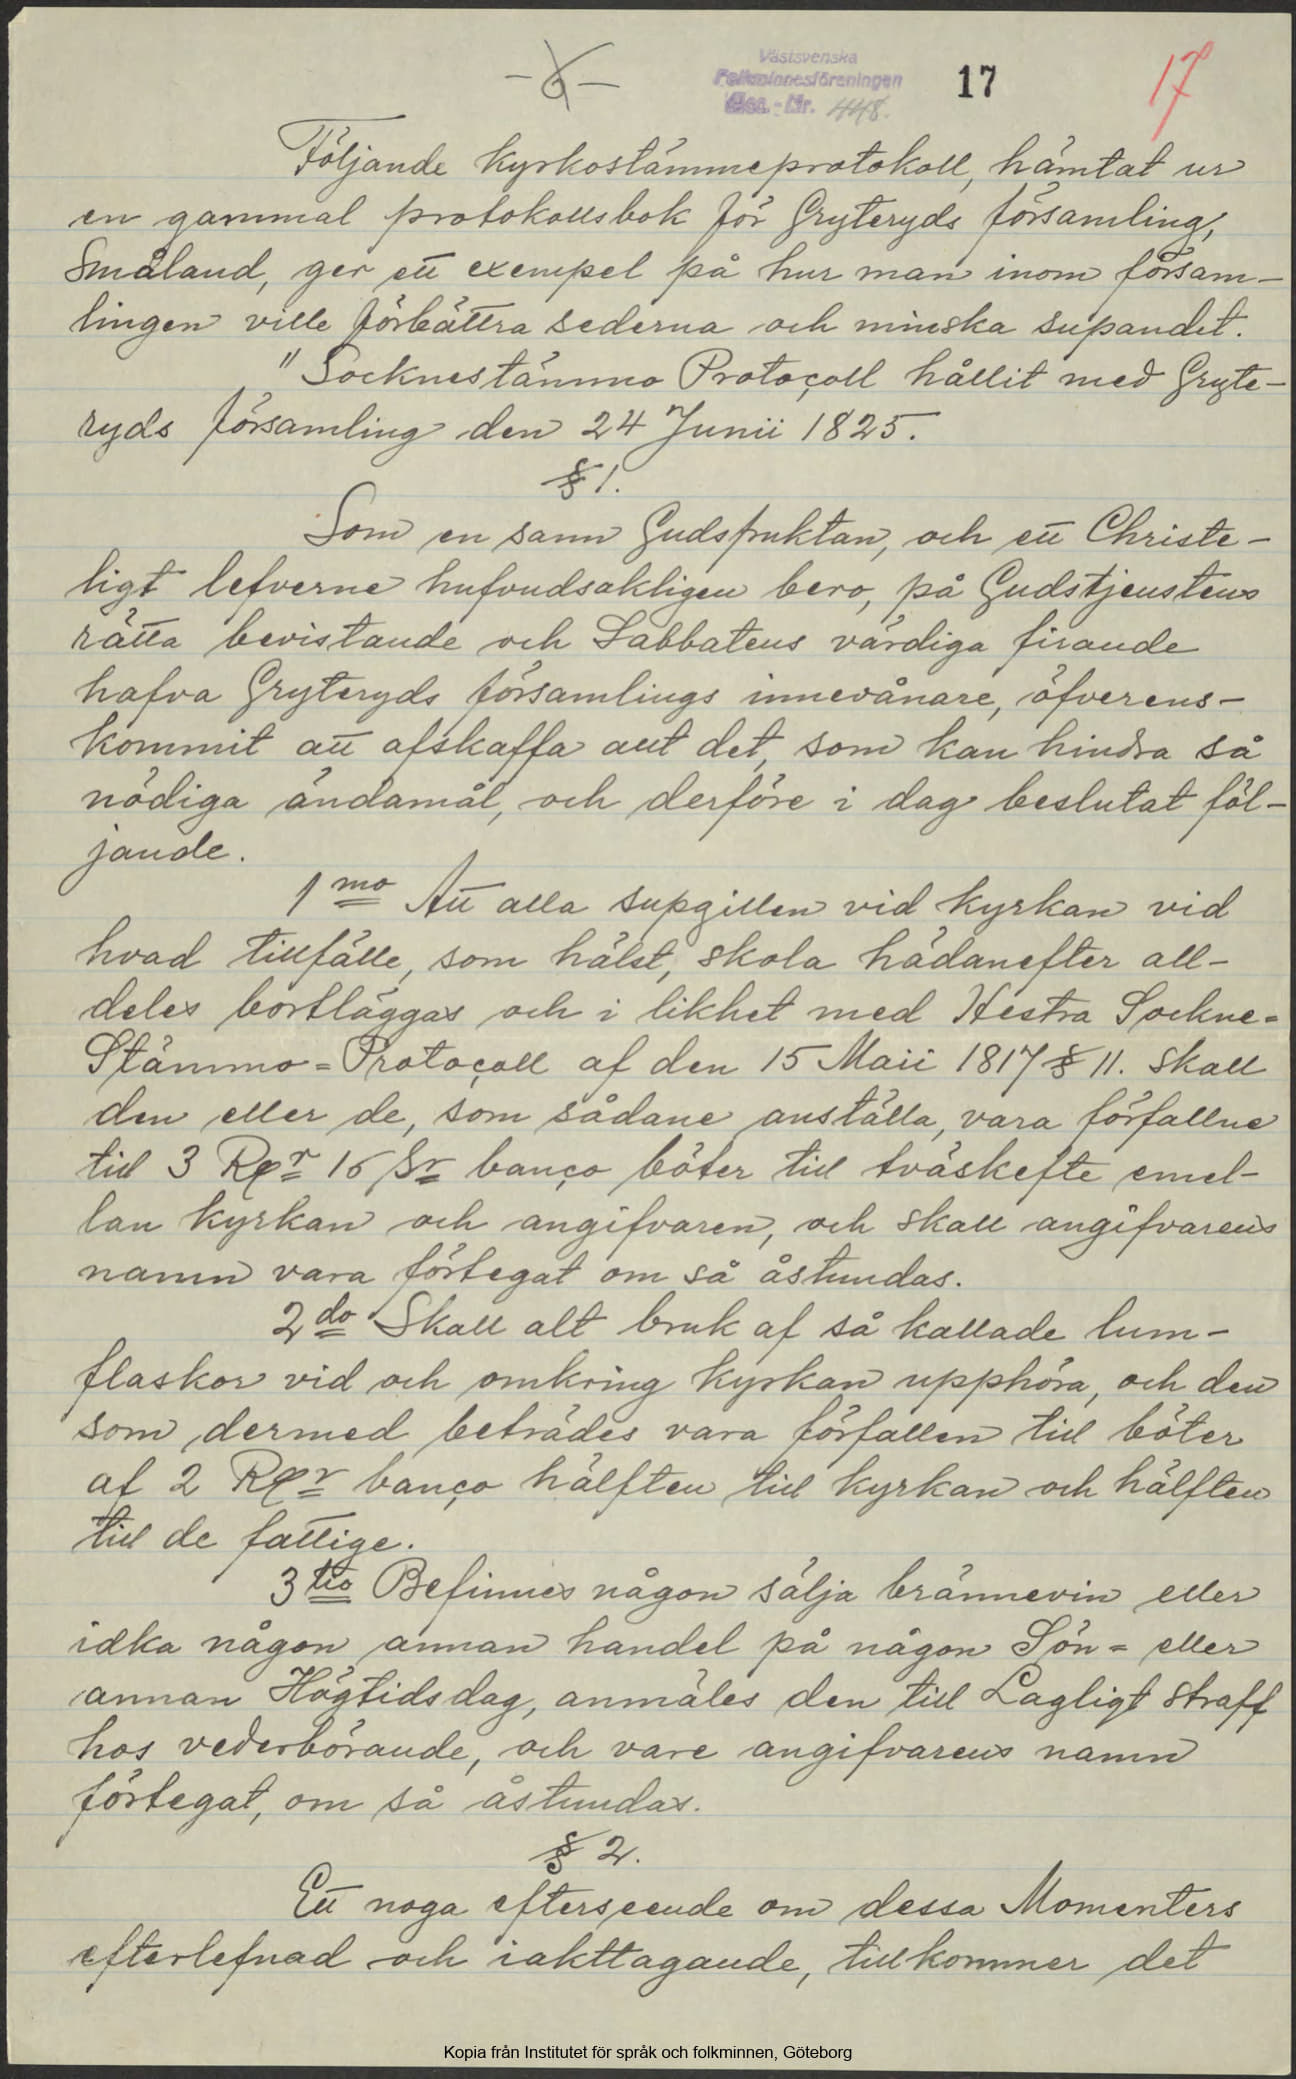 - 6 -
Västsvenska
Folkminnesföreningen
Acc. - Nr. 448.
17
17
Följande kyrkostämmeprotokoll, hämtat ur
en gammal protokollsbok för Gryteryds församling,
Småland, ger ett exempel på hur man inom försam-
lingen ville förbättra sederna och minska supandet.
"Socknestämmo Protocoll hållit med Gryte-
ryds församling den 24 Junii 1825.
§ 1.
Som en sann Gudsfruktan, och ett Christe-
ligt lefverne hufvudsakligen bero, på Gudstjenstens
rätta bevistande och Sabbatens värdiga firande
hafva Gryteryds församlings innevånare, öfverens-
kommit att afskaffa allt det, som kan hindra så
nödiga ändamål, och derföre i dag beslutat föl-
jande.
1mo Att alla supgillen vid kyrkan vid
hvad tillfälle, som hälst, skola hädanefter all-
deles bortläggas och i likhet med Hestra Sockne=
Stämmo=Protocoll af den 15 Maii 1817 § 11. skall
den eller de, som sådane anställa, vara förfallne
till 3 Rdr 16 sr banco böter till tväskefte emel-
lan kyrkan och angifvaren, och skall angifvarens
namn vara förtegat om så åstundas.
2do Skall alt bruk af så kallade lum-
flaskor vid och omkring kyrkan upphöra, och den
som dermed beträdes vara förfallen till böter
af 2 Rdr banco hälften till kyrkan och hälften
till de fattige.
3tio Befinnes någon sälja brännevin eller
idka någon annan handel på någon Sön= eller
annan Högtidsdag, anmäles den till Lagligt straff
hos vederbörande, och vare angifvarens namn
förtegat, om så åstundas.
§ 2.
Ett noga efterseende om dessa Momenters
efterlefnad och iakttagande, tillkommer det
Kopia från Institutet för språk och folkminnen, Göteborg